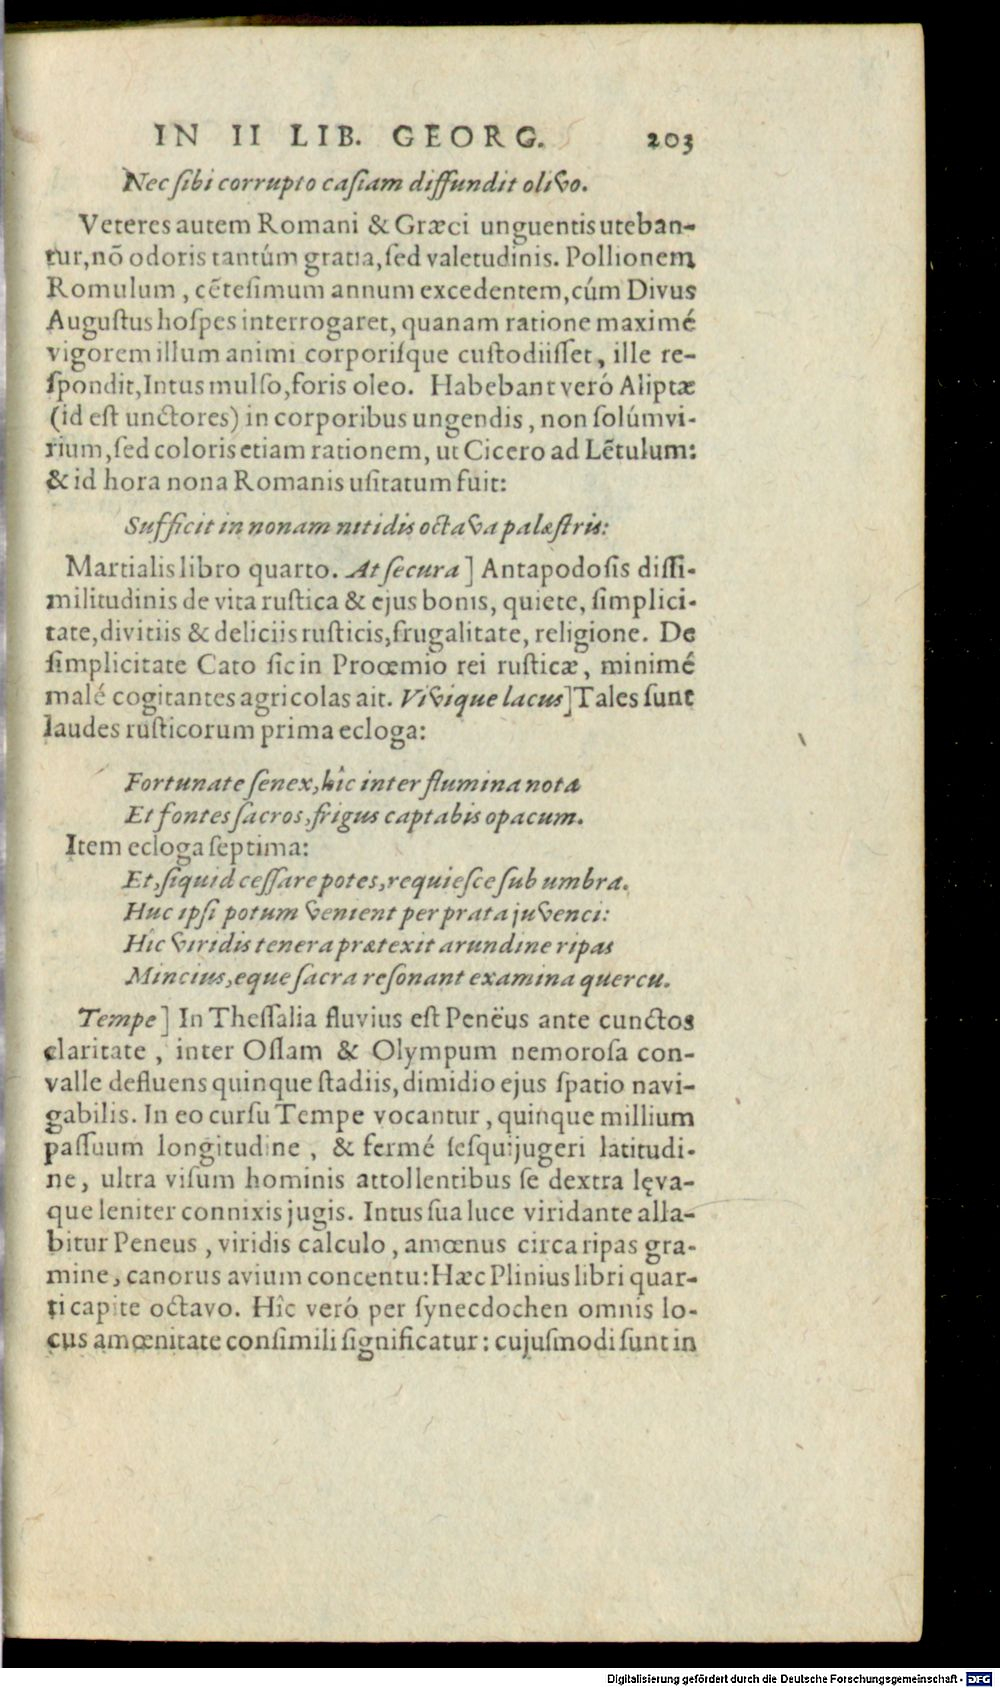 IN II LIB. GEORG. 203
Nec ſibi corrupto caſiam diffundit olivo.
Veteres autem Romani & Græci unguentis uteban-
tur, nõ odoris tantúm gratia, ſed valetudinis. Pollionem
Romulum, cẽteſimum annum excedentem, cúm Divus
Auguſtus hoſpes interrogaret, quanam ratione maximé
vigorem illum animi corporiſque cuſtodiiſſet, ille re-
ſpondit, Intus mulſo, foris oleo. Habebant veró Aliptæ
(id eſt unctores) in corporibus ungendis, non ſolúm vi-
rium, ſed coloris etiam rationem, ut Cicero ad Lẽtulum:
& id hora nona Romanis uſitatum fuit:
Sufficit in nonam nitidis octava palæſtris:
Martialis libro quarto. At ſecura] Antapodoſis diſſi-
militudinis de vita ruſtica & ejus bonis, quiete, ſimplici-
tate, divitiis & deliciis ruſticis, frugalitate, religione. De
ſimplicitate Cato ſic in Prooemio rei ruſticæ, minimé
malé cogitantes agricolas ait. Vivique lacus] Tales ſunt
laudes ruſticorum prima ecloga:
Fortunate ſenex, hîc inter flumina nota
Et fontes ſacros, frigus captabis opacum.
Item ecloga ſeptima:
Et, ſiquid ceſſare potes, requieſce ſub umbra.
Huc ipſi potum venient per prata juvenci:
Hîc viridis tenera prætexit arundine ripas
Mincius, eque ſacra reſonant examina quercu.
Tempe] In Theſſalia fluvius eſt Penëus ante cunctos
claritate, inter Oſſam & Olympum nemoroſa con-
valle defluens quinque ſtadiis, dimidio ejus ſpatio navi-
gabilis. In eo curſu Tempe vocantur, quinque millium
paſſuum longitudine, & fermé ſeſquijugeri latitudi-
ne, ultra viſum hominis attollentibus ſe dextra lęva-
que leniter connixis jugis. Intus ſua luce viridante alla-
bitur Peneus, viridis calculo, amœnus circa ripas gra-
mine, canorus avium concentu: Hæc Plinius libri quar-
ti capite octavo. Hîc veró per ſynecdochen omnis lo-
cus amœnitate conſimili ſignificatur: cujuſmodi ſunt in
Digitalisierung gefördert durch die Deutsche Forschungsgemeinschaft - DFG